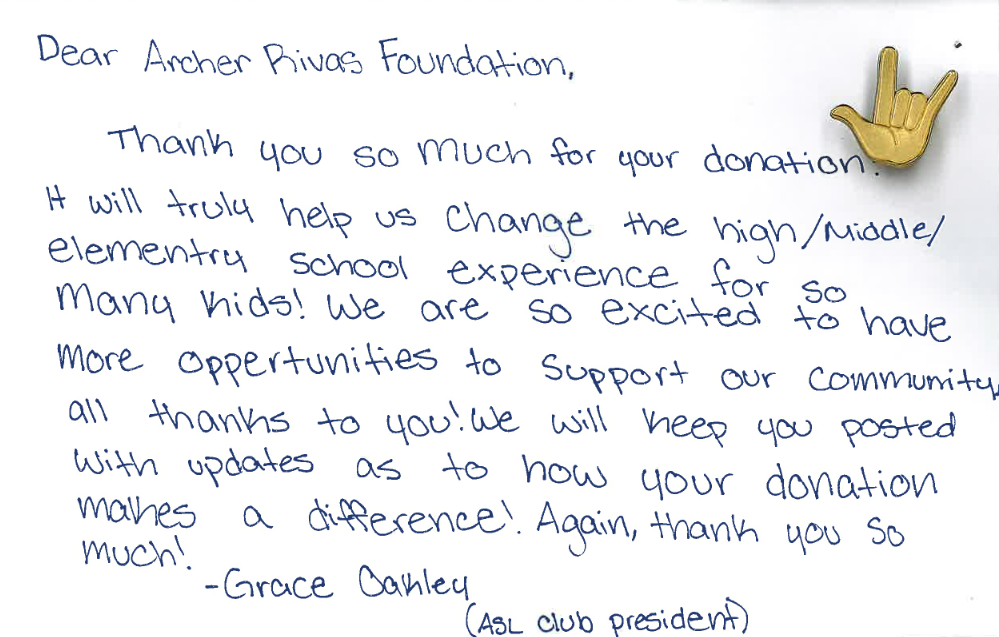 Dear Archer Rivas Foundation,
Thank you so much for your donation.
It will truly help us change the high/middle/
elementry school experience for so
many kids! We are so excited to have
more oppertunities to support our community,
all thanks to you! We will keep you posted
with updates as to how your donation
makes a difference! Again, thank you so
much!
-Grace Oakley
(ASL club president)